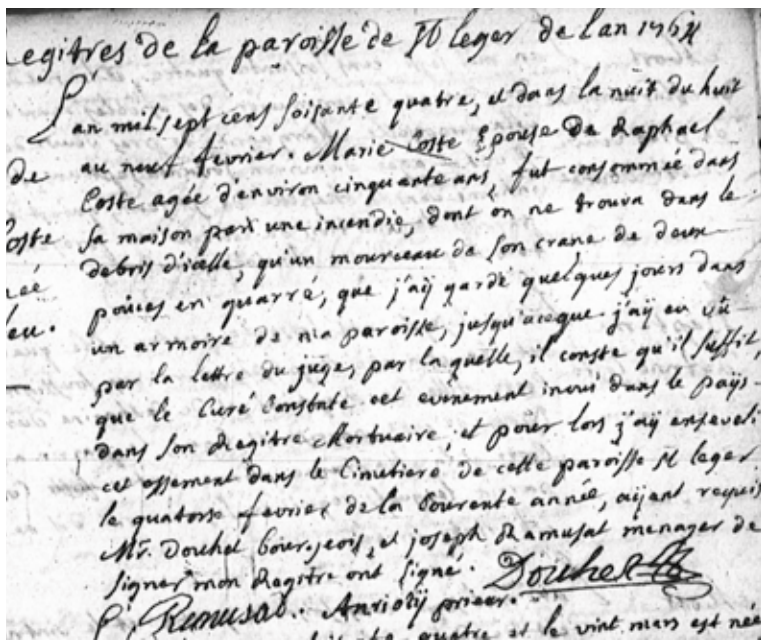 Regitres de la paroisse de St leger de lan 1764
Lan mil sept cens soisante quatre, et dans la nuit du huit
au neuf fevrier. Marie Coste Epouse de Raphael
de
Coste agée d'environ cinquante ans, fut consommée dans
Coste
sa maison par une incendie, dont on ne trouva dans le
debris d'icelle, qu'un mourceau de son crane de deux
née
pouces en quarré, que j'aÿ gardé quelques jours dans
eu.
un armoire de ma paroisse, jusqu'aceque j'aÿ eu vû
par la lettre du juge, par laquelle, il conste qu'il suffit,
que le Curé Constate cet evenement inouï dans le païs
dans son Regitre Mortuaire, et pour lors j'aÿ enseveli
cet ossement dans le Cimetiere de cette paroisse St leger
le quatorse fevrier de la Courente année, aÿent requis
Mr. Douhet bourjeois, et joseph Ramusat menager de
signer mon Regitre ont signé. Douhet
Remusat. prieur.
quatre et le vint mars est née